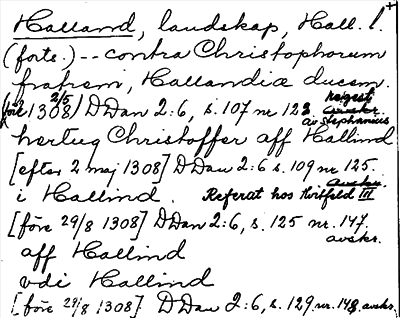 Halland, landskap, Hall. l.
(forts.) -- contra Christophorum
fratrem, Hallandiæ ducem.
före 2/5 1308 / DDan 2:6, s. 107 nr 123 regest av Stephanius
hertug Christoffer aff Hallind
[efter 2 maj 1308] DDan 2:6 s. 109 nr 125.
i Hallind. Referat hos Hvitfeld III
[före 29/8 1308] DDan 2:6, s. 125 nr. 147. avskr.
aff Hallind
vdi Hallind
[före 29/8 1308] DDan 2:6, s. 129 nr. 148. avskr.